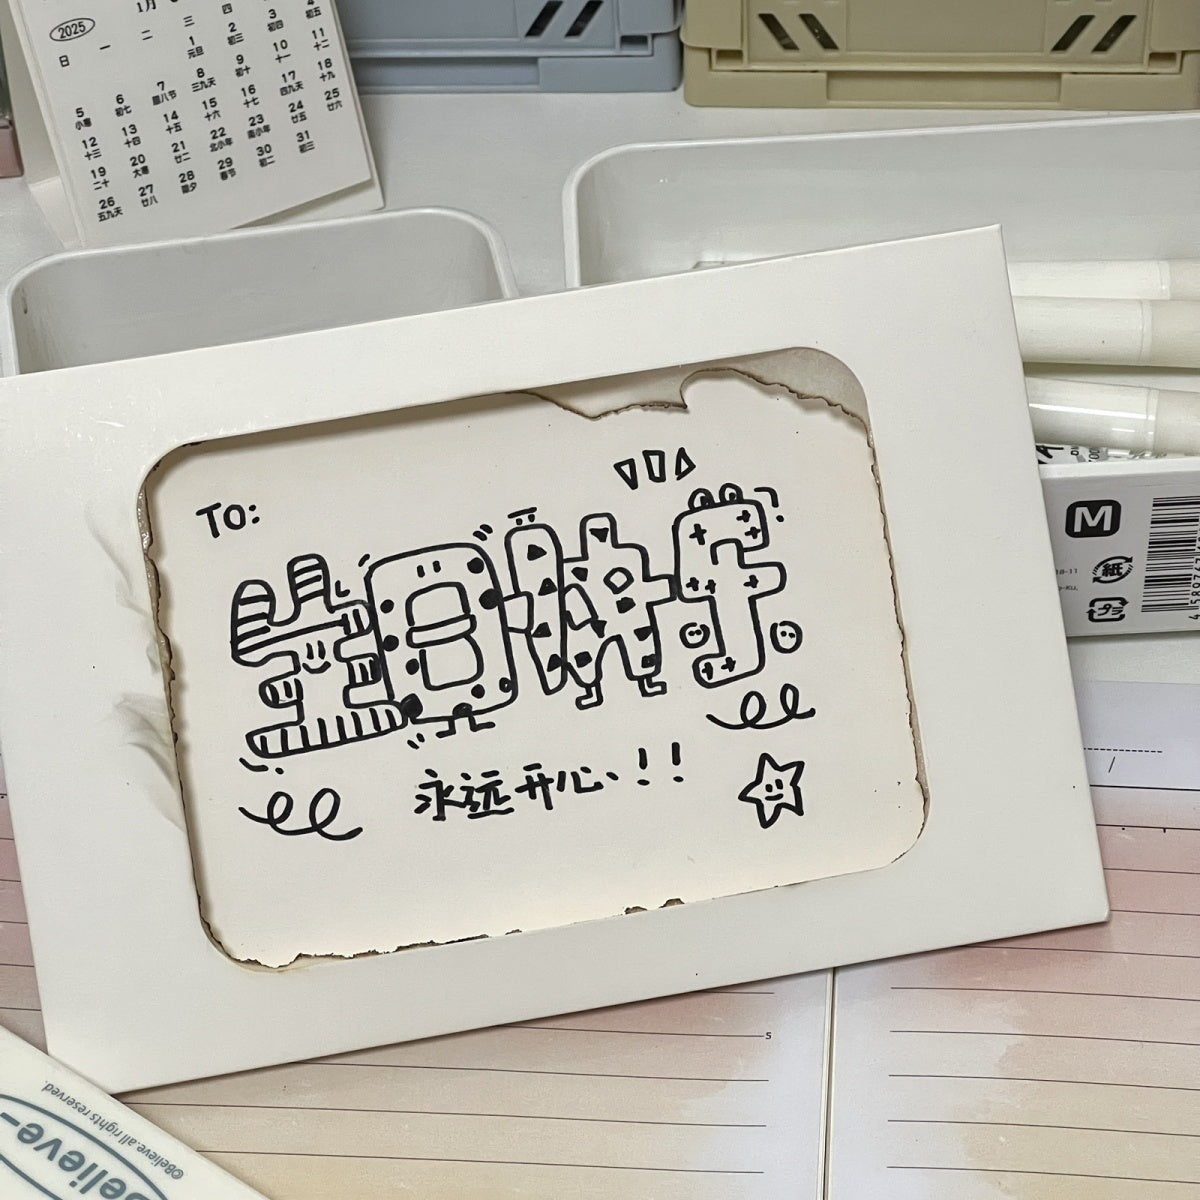 1月
2025
日 一 二 三 四
1 2 3 4
元旦 初三 初四 初五
5 6 7 8 9 10 11
小寒 初七 腊八节 三九天 初十 十一 十二
12 13 14 15 16 17 18
十三 十四 十五 十六 十七 四九天 十九
19 20 21 22 23 24 25
二十 大寒 廿二 北小年 南小年 廿五 廿六
26 27 28 29 30 31
五九天 廿八 除夕 春节 初二 初三
TO:
生日快乐
永远开心!!
M
紙
プラ
5
©Believe.all rights reserved.
Believe-